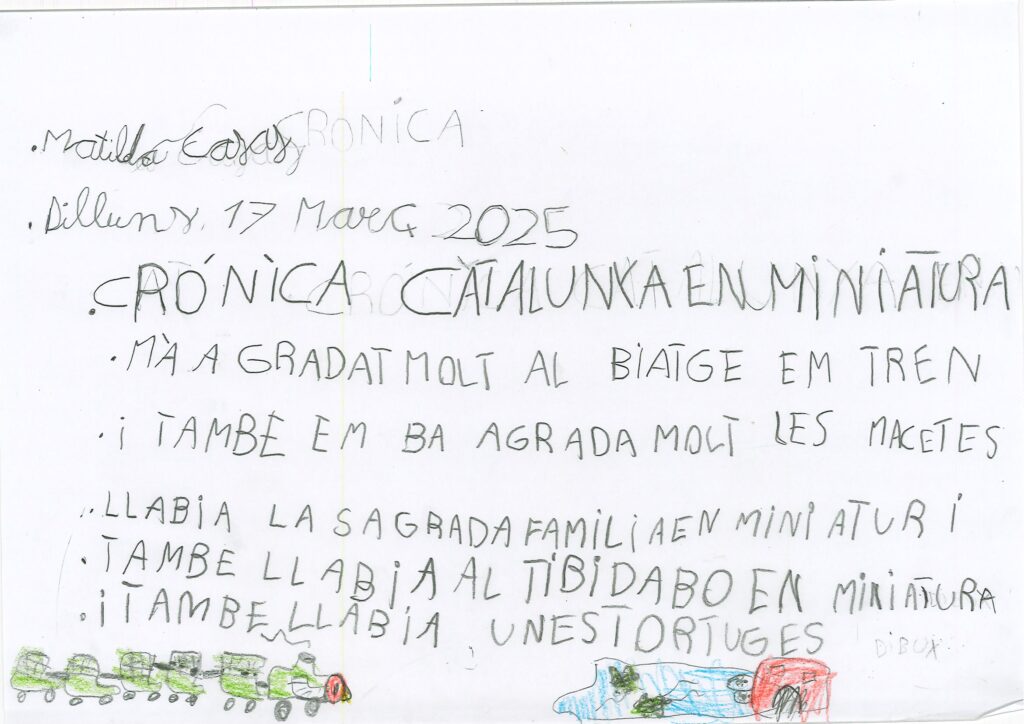 CRÒNICA
.Matilda Casas
.Dilluns, 17 Març 2025
.CRÓNÌCA CATALUNYA EN MINIATURA
.M'À A GRADAT MOLT AL BIATGE EM TREN
.i TAMBÉ EM BA AGRADA MOLT LES MACETES
.LLABIA LA SAGRADA FAMILIA EN MINIATUR I
.TAMBE LLABIA AL TIBIDABO EN MINIATURA
.i TAMBE LLABIA UNES TORTUGES
DIBUX